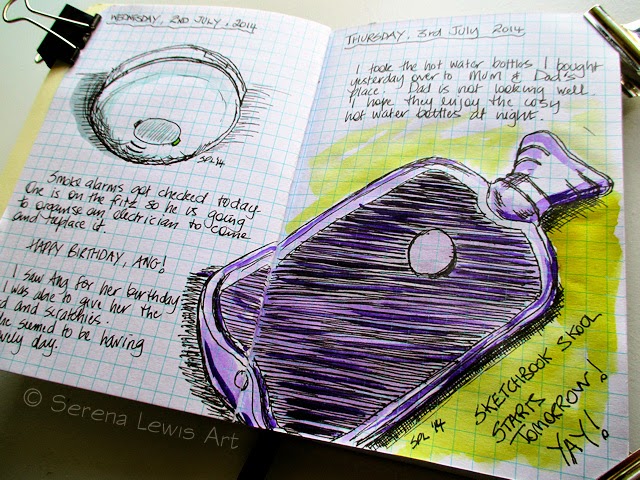 WEDNESDAY, 2ND JULY, 2014
SPL '14
Smoke alarms got checked today.
One is on the fritz so he is going
to organise an electrician to come
and replace it.
HAPPY BIRTHDAY, ANG!
I saw Ang for her birthday
I was able to give her the
and scratchies.
seemed to be having
day.
THURSDAY, 3rd JULY 2014
I took the hot water bottles I bought
yesterday over to Mum & Dad's
place. Dad is not looking well.
I hope they enjoy the cosy
hot water bottles at night.
SPL '14
SKETCHBOOK SKOOL
STARTS
TOMORROW!
YAY!
© Serena Lewis Art